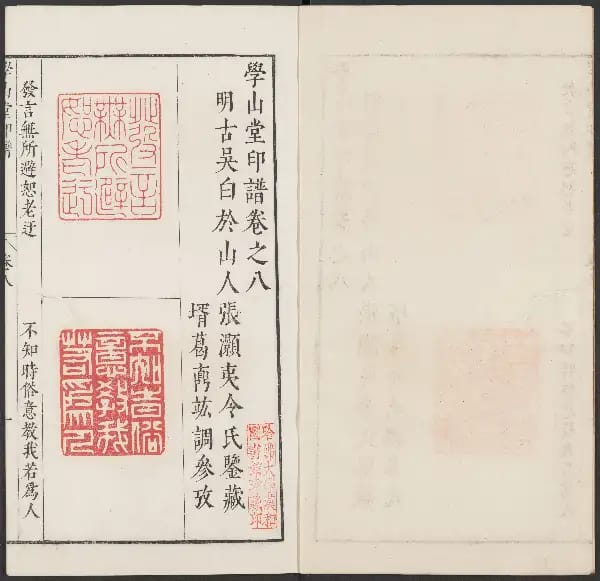 學山堂印譜卷之八
明古吳白於山人張灝夷令氏鑒藏
壻葛鼒竑調參攷
發言無所避恕老迂
不知時俗意教我若爲人
學山堂印譜
卷八
一